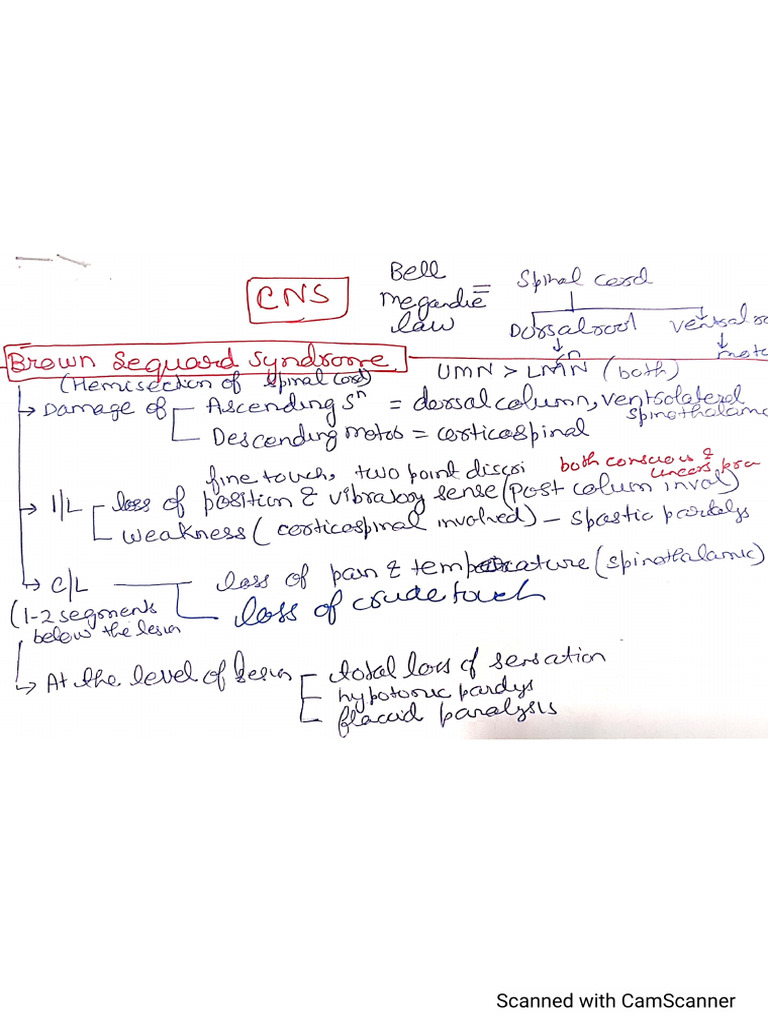 CNS
Bell
Megandie =
law
Spinal cord
Dorsal root
Ventral
sn
moto
Brown Sequard Syndrome
(Hemisection of spinal cord)
UMN > LMN (both)
→ Damage of
Ascending sn = dorsal column, ventrolateral
spinothalam
Descending motor = corticospinal
fine touch, two point discri
both conscious &
→ I/L
loss of position & vibratory sense (post colum invol)
weakness (corticospinal involved) - spastic
→ C/L
loss of pain & temperature (spinothalamic)
loss of crude touch
(1-2 segments
below the lesion
→ At the level of lesion
total loss of sensation
hypotonic
flaccid paralysis
Scanned with CamScanner